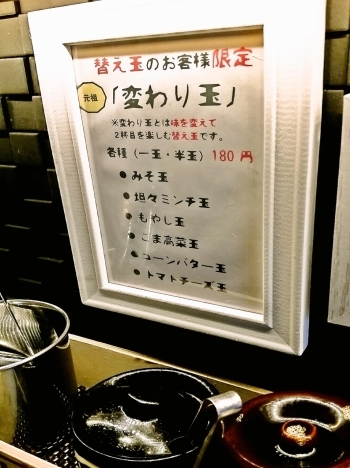 替え玉のお客様限定
元祖
「変わり玉」
※変わり玉とは味を変えて
2杯目を楽しむ替え玉です。
各種（一玉・半玉）180円
●みそ玉
●坦々ミンチ玉
●もやし玉
●ごま高菜玉
●コーンバター玉
●トマトチーズ玉